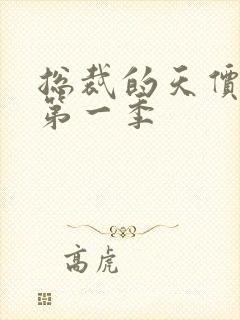 总裁的天價
第一季
高虎